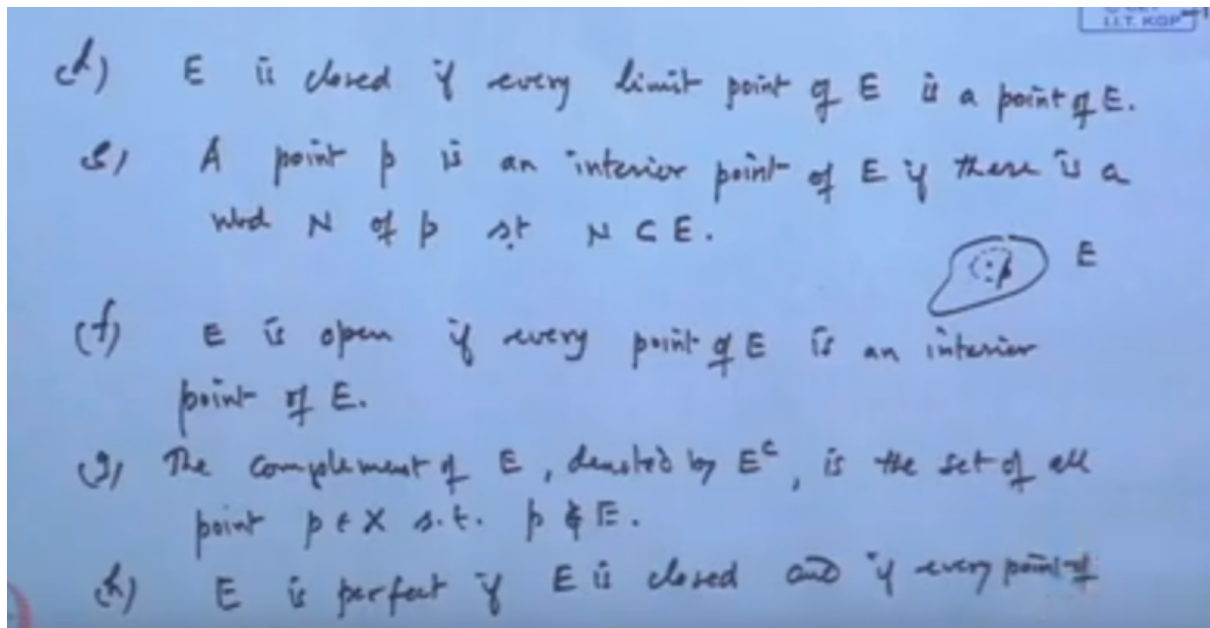 I.I.T. KGP
(d) E is closed if every limit point of E is a point of E.
(e) A point p is an interior point of E if there is a
nbd N of p st N ⊂ E.
p E
(f) E is open if every point of E is an interior
point of E.
(g) The complement of E, denoted by E^c, is the set of all
point p ∈ X s.t. p ∉ E.
(h) E is perfect if E is closed and if every point of